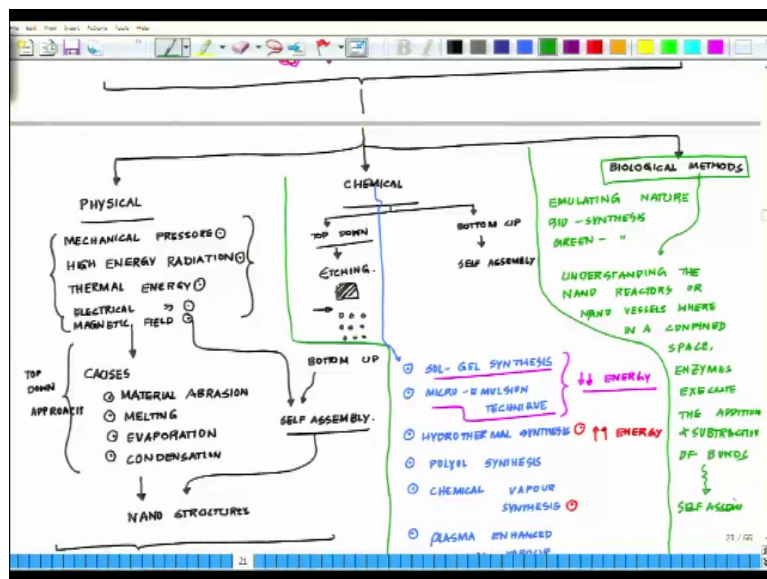 File Edit View Insert Actions Tools Help
PHYSICAL
MECHANICAL PRESSURE
HIGH ENERGY RADIATION
THERMAL ENERGY
ELECTRICAL "
MAGNETIC FIELD
TOP
DOWN
APPROACH
CAUSES
MATERIAL ABRASION
MELTING
EVAPORATION
CONDENSATION
NANO STRUCTURES
CHEMICAL
TOP DOWN
ETCHING.
BOTTOM UP
SELF ASSEMBLY.
BOTTOM UP
SELF ASSEMBLY
SOL-GEL SYNTHESIS
MICRO-EMULSION
TECHNIQUE
↓↓ ENERGY
HYDROTHERMAL SYNTHESIS
↑↑ ENERGY
POLYOL SYNTHESIS
CHEMICAL VAPOUR
SYNTHESIS
PLASMA ENHANCED
VAPOUR
BIOLOGICAL METHODS
EMULATING NATURE
BIO-SYNTHESIS
GREEN- "
UNDERSTANDING THE
NANO REACTORS OR
NANO VESSELS WHERE
IN A CONFINED
SPACE,
ENZYMES
EXECUTE
THE ADDITION
+ SUBTRACTION
OF BONDS
SELF ASSEM
21
21 / 66